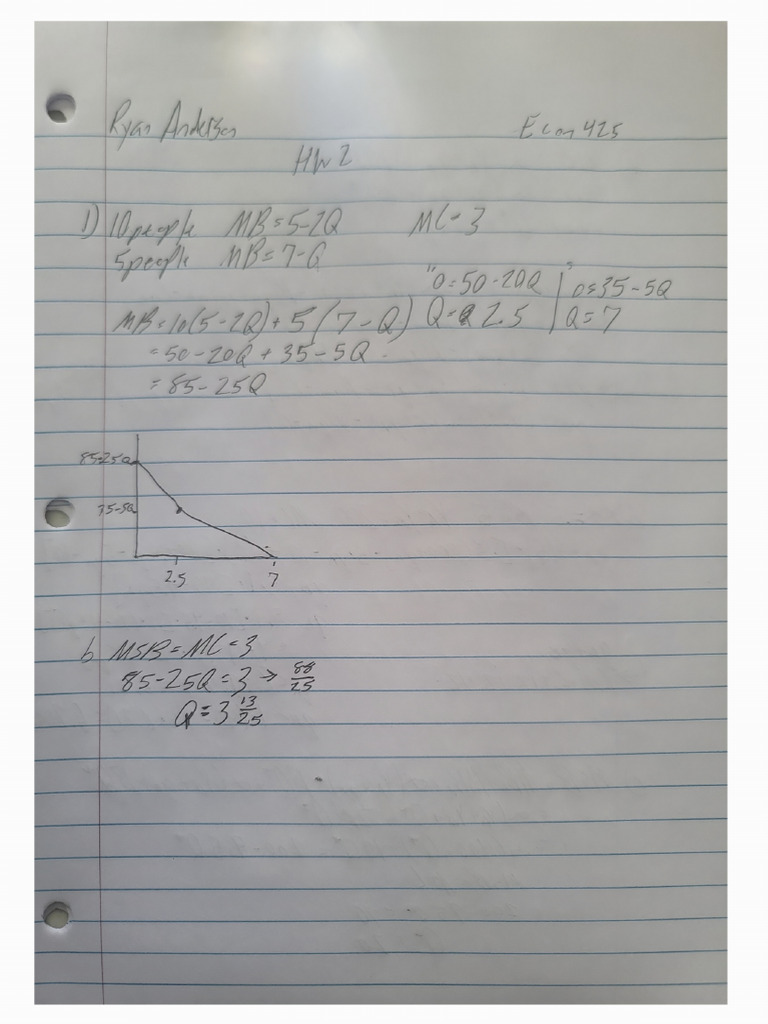 Ryan Anderson Econ 425
HW 2
1) 10 people MB = 5-2Q MC = 3
5 people MB = 7-Q
"0 = 50-20Q | "0 = 35-5Q
MB = 10(5-2Q) + 5(7-Q) Q = 2.5 | Q = 7
= 50-20Q + 35-5Q
= 85-25Q
85-25Q
35-5Q
2.5 7
b MSB = MC = 3
85-25Q = 3 → 88/25
Q = 3 13/25